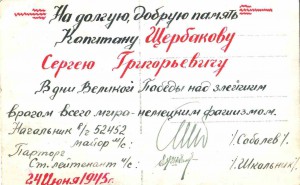 На долгую, добрую память
Капитану Щербакову
Сергею Григорьевичу
В дни Великой Победы над злейшим
врагом всего мира - немецким фашизмом.
Начальник в/ч 52452
майор в/с: /Соболев/.
Парторг
Ст. лейтенант в/с: /Школьник/.
24 Июня 1945 г.